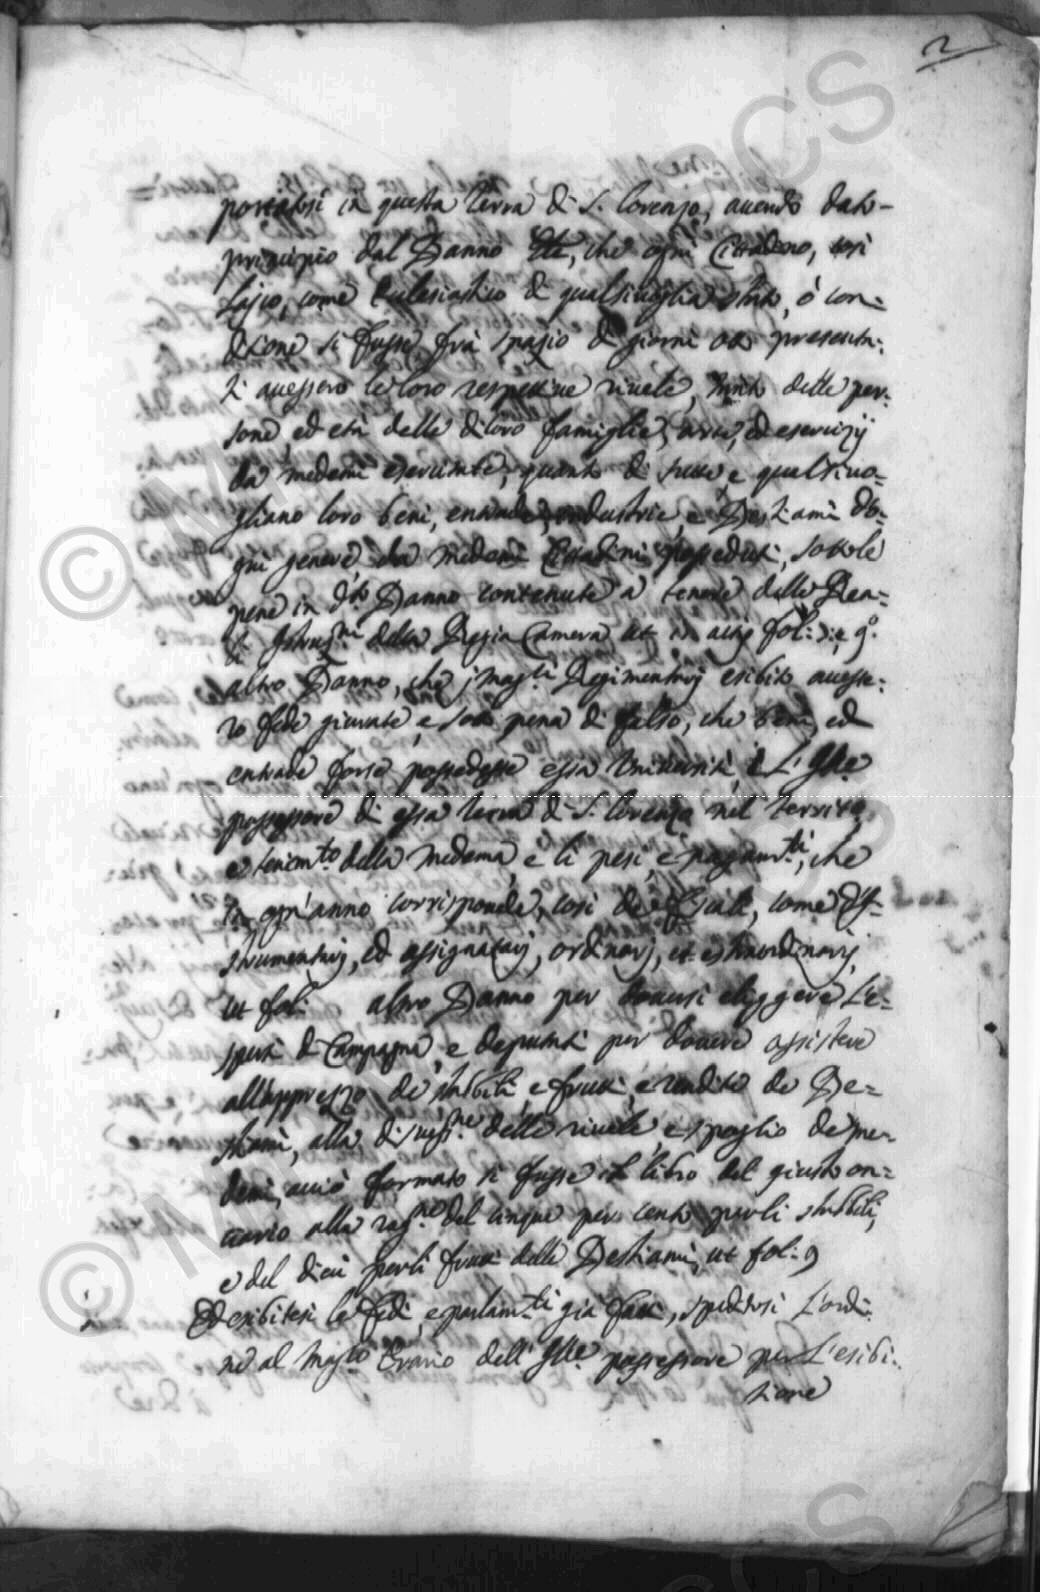 2
portatosi in questa terra di S. Lorenzo, avendo dato-
principio dal Banno Ete, che ogni Cittadino, così
Lajco, come Eclesiastico di qualsivoglia stato, ò con=
dizione si fusse, frà spazio di giorni otto presenta=
ti avessero le loro respettive rivele, tanto delle per=
sone, ed età delle di loro famiglie, arte, ed esercizij
da medemi esercitate, quanto di tutti, e qualsivo=
gliano loro beni, entrade, industrie, e Bestiami d'o=
gni genere da medemi Cittadini posseduti, sotto le
pene in d.to Banno contenute a tenore delle Rea=
li Istruz.ni della Regia Camera ut in actis fol: 9.
altro Banno, che i mag.ci Regimentarij esibito avesse=
ro fede giurate, e sotto pena di falso, che beni, ed
entrade forse possedesse essa Università, e L'Ill.e
possessore di essa terra di S. Lorenzo nel territ.o
e tenim.to della medema, e li pesi, e pagam.ti, che
in ogn'anno corrisponde, così de Fiscali, come d'I=
strumentarij, ed assignatarij, ordinarj, et estraordinarj,
ut fol: altro Banno per doversi eliggere L'e=
sperti di Campagna, e deputati per dovere assistere
all'apprezzo de stabbili, e frutti, e rendite de Be=
stiami, alla discuss.ne delle rivele, e spoglio de me=
demi, acciò formato si fusse il libro del giusto on=
ciario alla rag.ne del cinque per cento per li stabbili,
e del dieci per li frutti delli Bestiami, ut fol: 9
Ed esibitesi le fedi, e parlam.ti già fatti, speditosi L'ordi=
ne al Mag.co Erario dell'Ill.e possessore per L'esibi=
zione
© M
CS